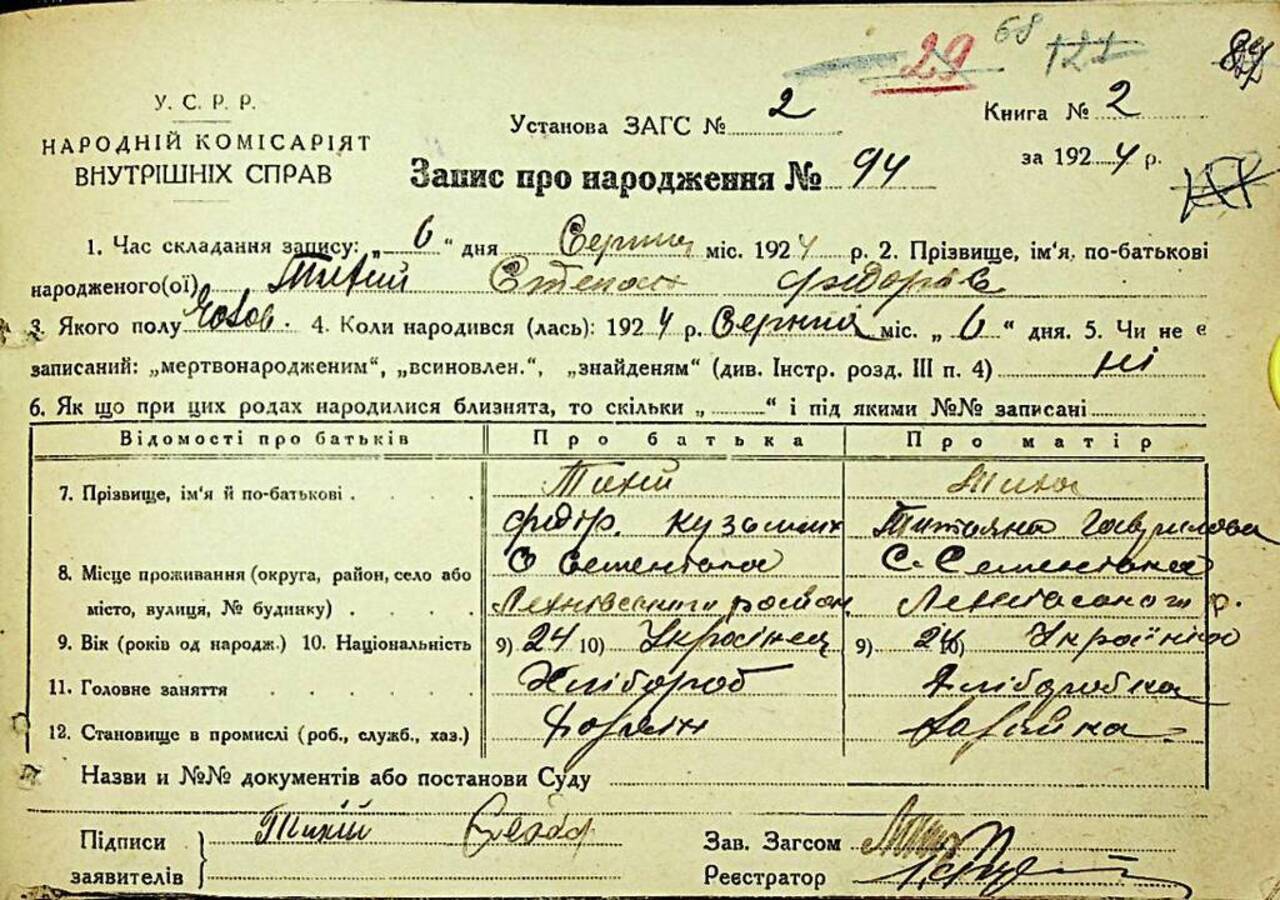 29 68 121
У. С. Р. Р.
НАРОДНІЙ КОМІСАРІЯТ
ВНУТРІШНІХ СПРАВ
Установа ЗАГС № 2
Книга № 2
за 1924 р.
Запис про народження № 94
1. Час складання запису: „ 6 “ дня Серпня міс. 1924 р. 2. Прізвище, ім'я, по-батькові
народженого(ої) Тихий Степан Федорів
3. Якого полу Чолов. 4. Коли народився (лась): 1924 р. Серпня міс. „ 6 “ дня. 5. Чи не є
записаний: „мертвонародженим“, „всиновлен.“, „знайденям“ (див. Інстр. розд. III п. 4) ні
6. Як що при цих родах народилися близнята, то скільки „ “ і під якими №№ записані
Відомості про батьків Про батька Про матір
7. Прізвище, ім'я й по-батькові Тихий Тиха
Федір. Кузьмич Титяна Гаврилова
8. Місце проживання (округа, район, село або С Семенівка С. Семенівка
місто, вулиця, № будинку) район р.
9. Вік (років од народж.) 10. Національність 9) 24 10) Українец 9) 24 10) Українка
11. Головне заняття Хлібороб Хліборобка
12. Становище в промислі (роб., служб., хаз.) Хазяін Хазяйка
Назви и №№ документів або постанови Суду
Підписи Тихій
заявителів
Зав. Загсом
Реєстратор